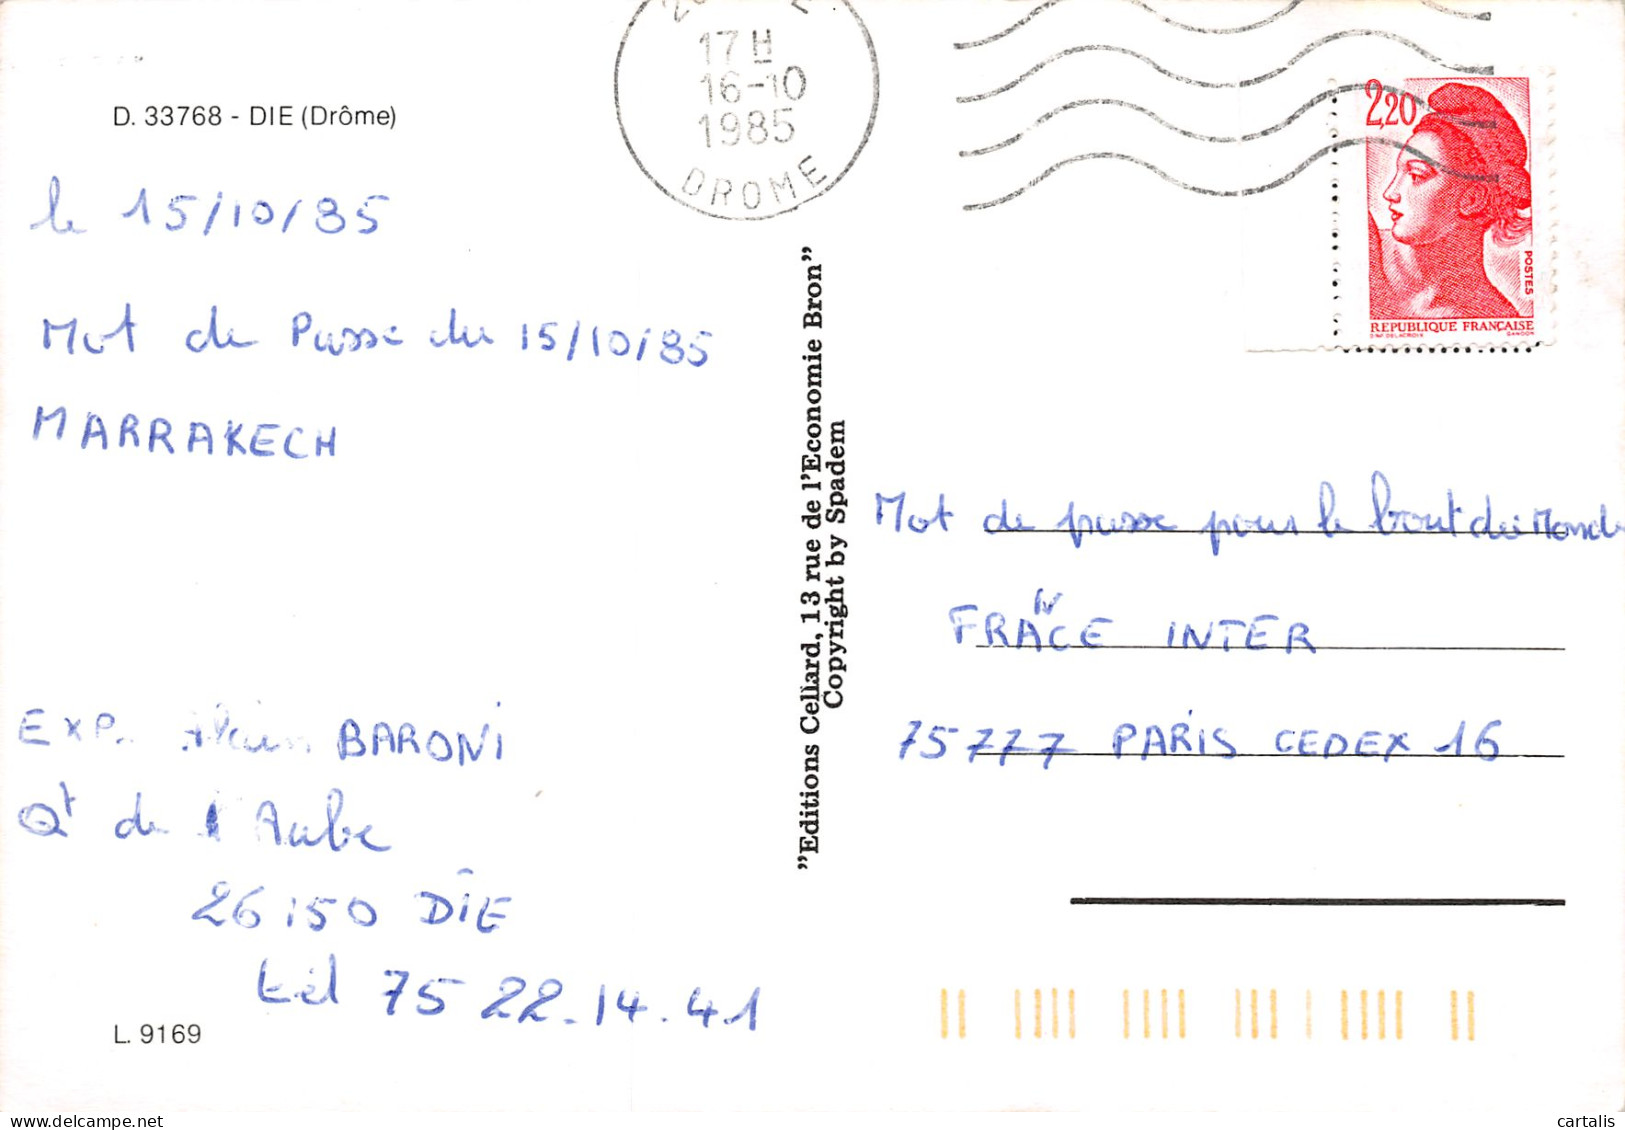 D. 33768 - DIE (Drôme)
le 15/10/85
Mot de Passe du 15/10/85
MARRAKECH
EXP. Alain BARONI
Qt de l'Aube
26150 DIE
tél 75 22.14.41
L. 9169
17 H
16-10
1985
DROME
"Editions Cellard, 13 rue de l'Economie Bron"
Copyright by Spadem
2,20
POSTES
REPUBLIQUE FRANÇAISE
D'AP. DELACROIX GANDON
Mot de passe pour le bout du Monde
FRANCE INTER
75777 PARIS CEDEX 16
cartalis